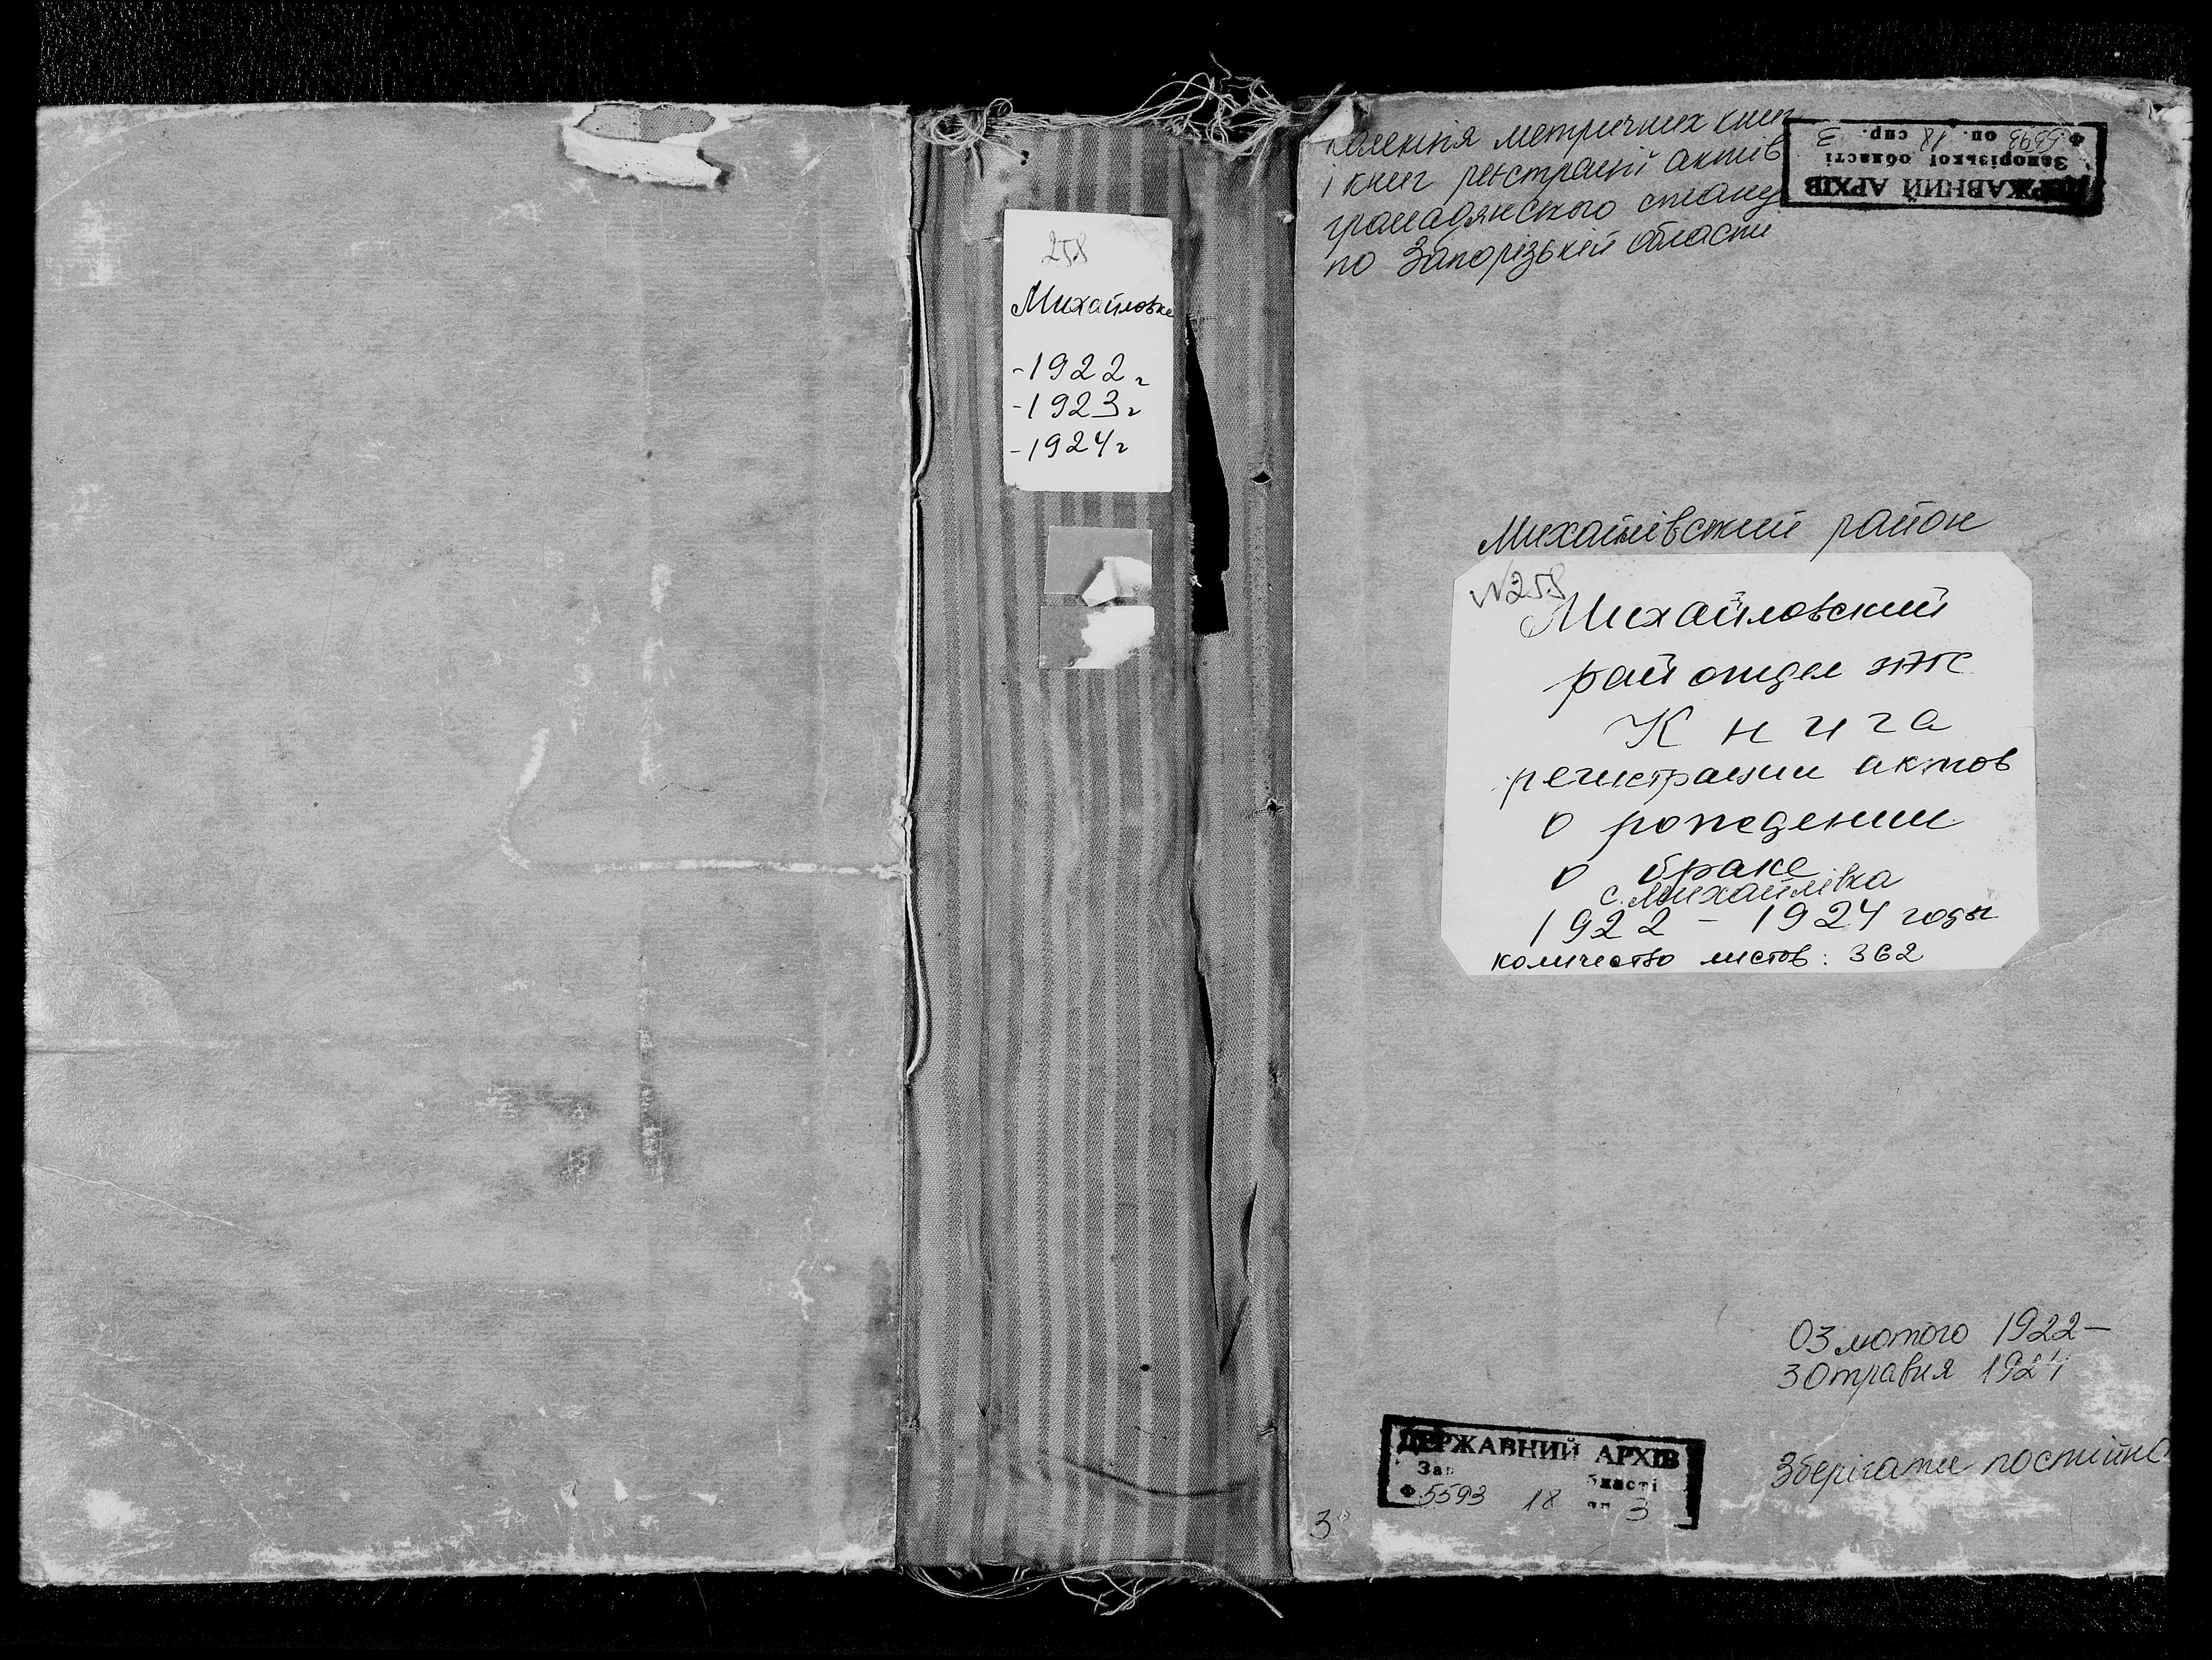 258
Михайловке
-1922г
-1923г
-1924г
метричних книг
і книг реєстрації актів
громадянського стану
по Запорізькій області
ДЕРЖАВНИЙ АРХІВ
Запорізької області
Ф. 5593 оп. 18 спр. 3
Михайлівський район
№258
Михайловский
райотдел
Книга
регистрации актов
о рождении
о браке
с. Михайлівка
1922 - 1924 годы
количество листов: 362
03 лютого 1922-
30 травня 1924
Зберігати постійно
ДЕРЖАВНИЙ АРХІВ
Зап бласті
Ф. 5593 18 3
3